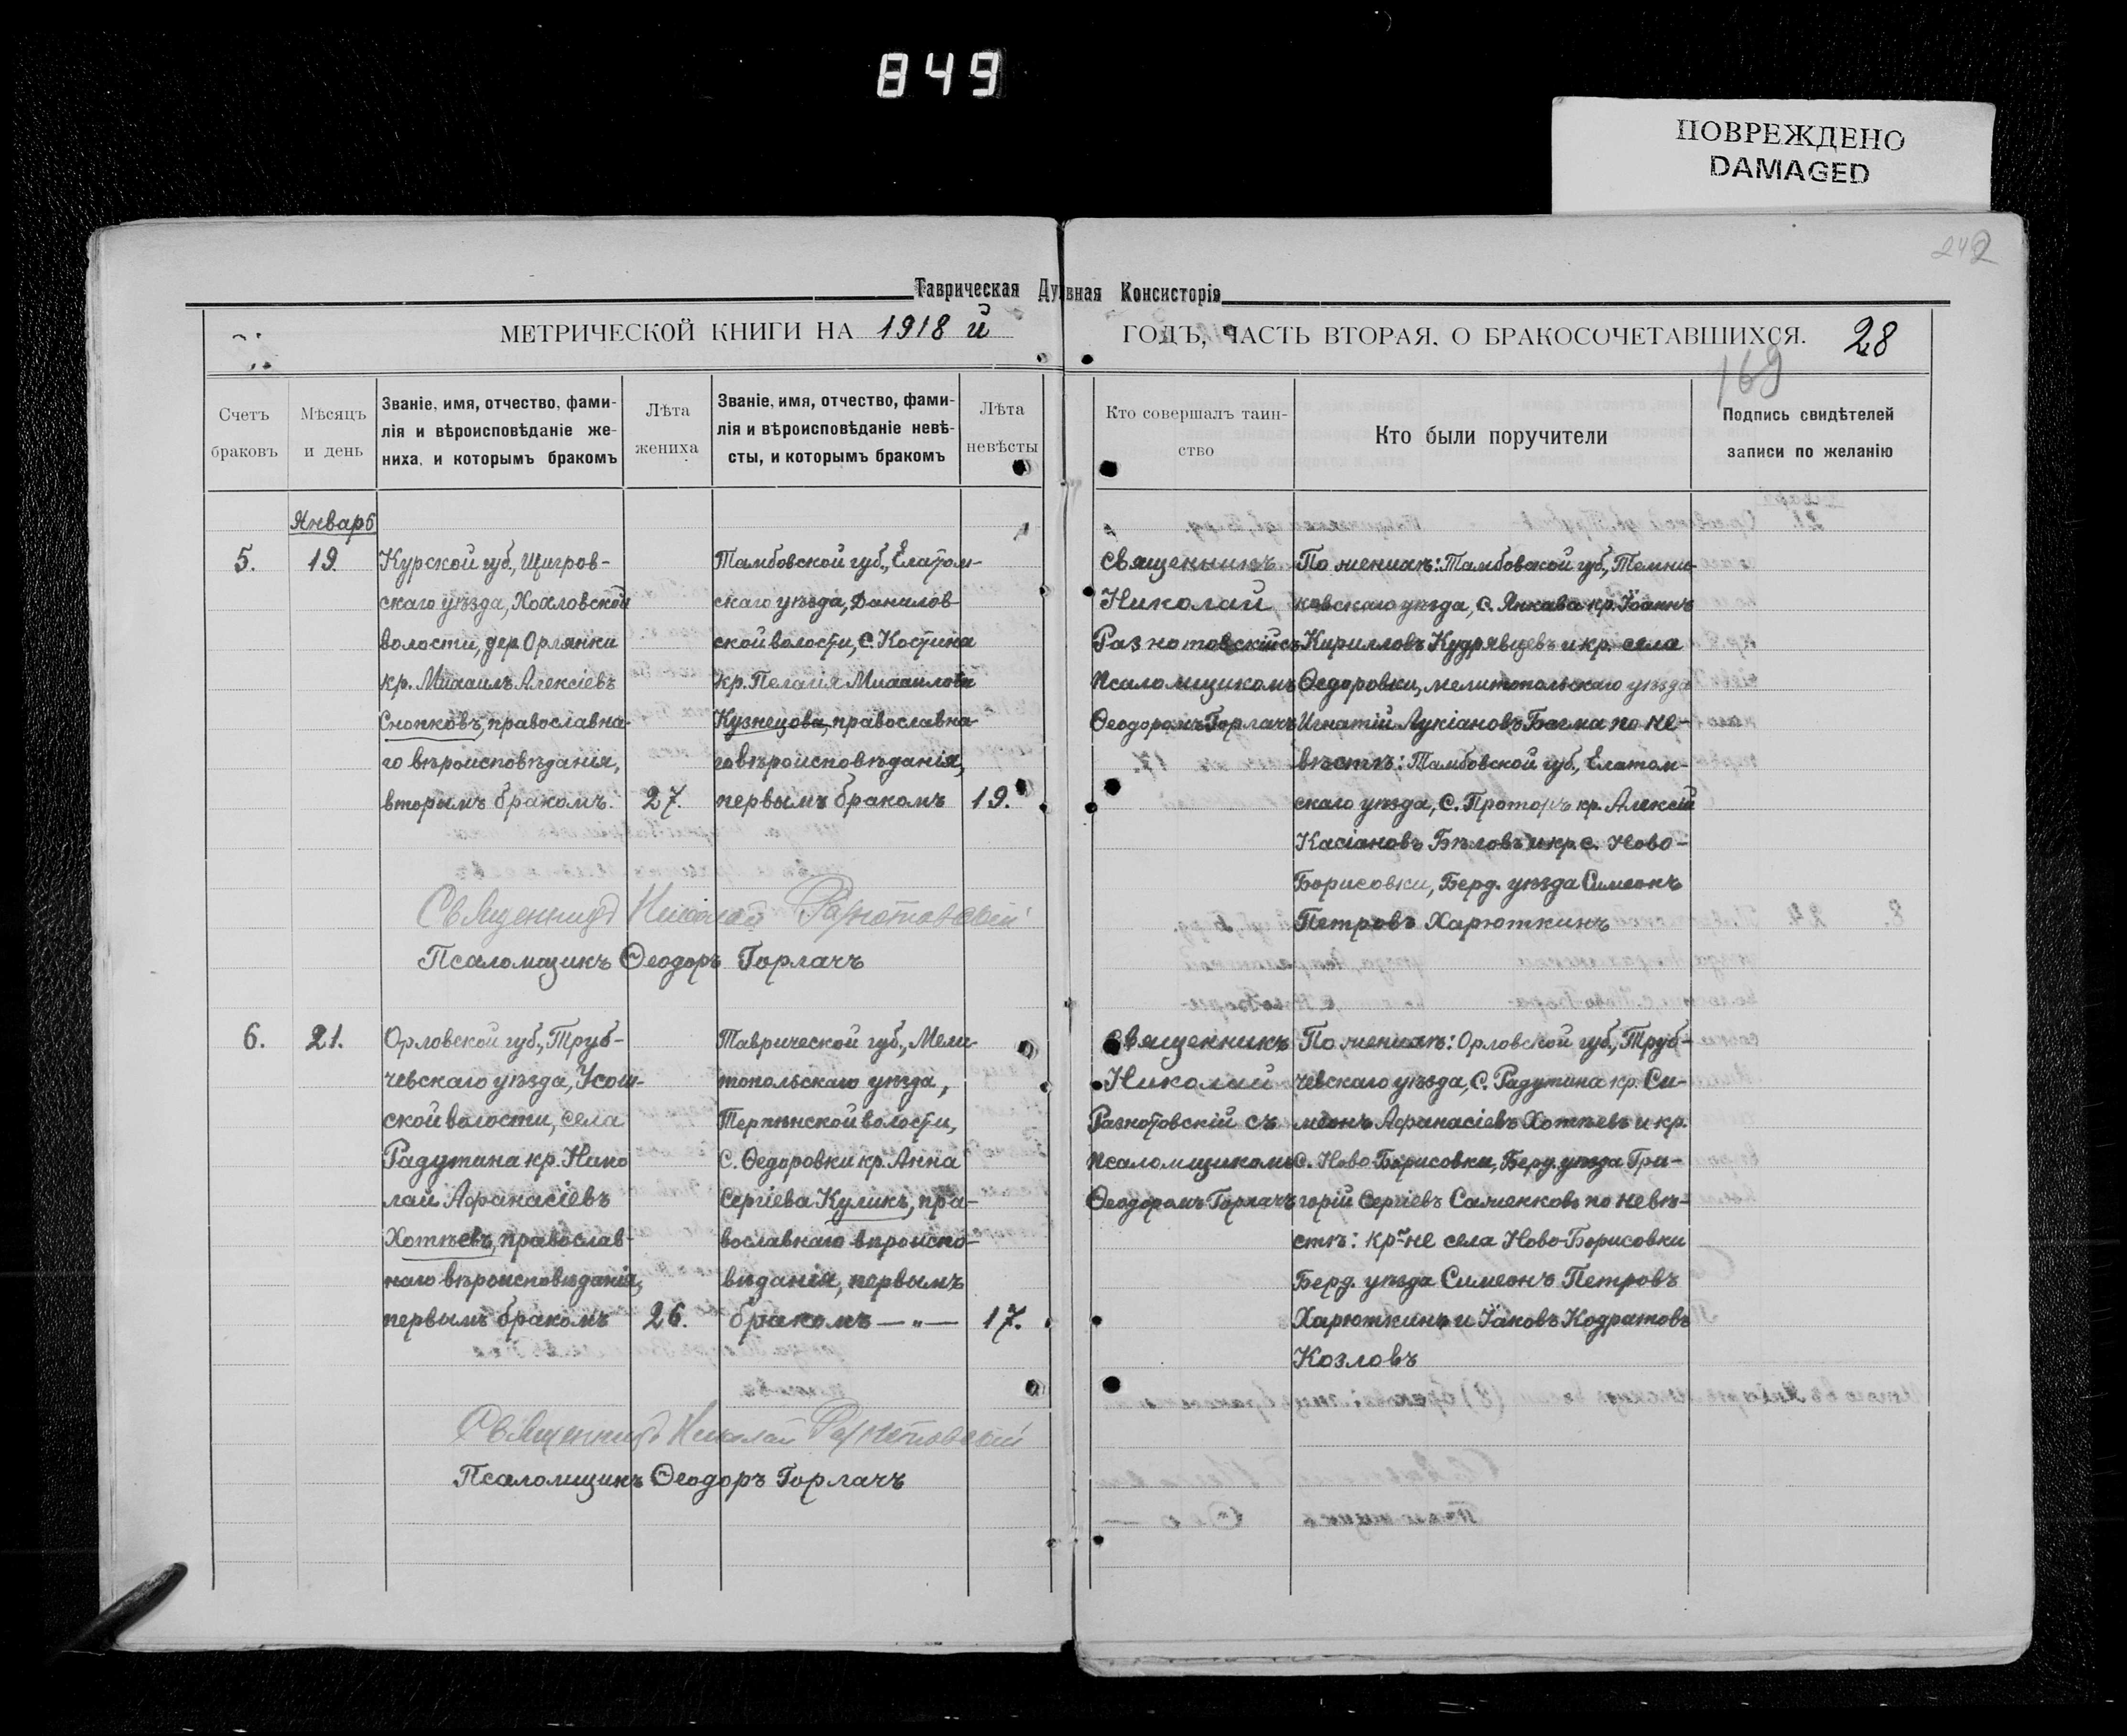 849
ПОВРЕЖДЕНО
DAMAGED
242
Таврическая Духовная Консисторія
МЕТРИЧЕСКОЙ КНИГИ НА 1918 й
ГОДЪ, ЧАСТЬ ВТОРАЯ, О БРАКОСОЧЕТАВШИХСЯ.
28
169
Счетъ
браковъ
Мѣсяцъ
и день
Званіе, имя, отчество, фами-
лія и вѣроисповѣданіе же-
ниха, и которымъ бракомъ
Лѣта
жениха
Званіе, имя, отчество, фами-
лія и вѣроисповѣданіе невѣ-
сты, и которымъ бракомъ
Лѣта
невѣсты
Кто совершалъ таин-
ство
Кто были поручители
Подпись свидѣтелей
записи по желанію
Январь
5.
19.
Курской губ., Щигров-
скаго уѣзда, Хохловской
волости, дер. Орлянки
кр. Михаилъ Алексіевъ
Снопковъ, православна-
го вѣроисповѣданія,
вторымъ бракомъ.
27.
Тамбовской губ., Елатом-
скаго уѣзда, Данилов-
ской волости, с. Костина
кр. Пелагія Михаилова
Кузнецова, православна-
го вѣроисповѣданія,
первымъ бракомъ
19.
Священникъ
Николай
Разнотовскій съ
псаломщикомъ
Ѳеодоромъ Горлачъ
По женихѣ: Тамбовской губ., Темни-
ковскаго уѣзда, с. Янкава кр. Іоаннъ
Кирилловъ Кудрявцевъ и кр. села
Ѳедоровки, мелитопольскаго уѣзда
Игнатій Лукіановъ Багма по не-
вѣстѣ: Тамбовской губ., Елатом-
скаго уѣзда, с. Проторъ кр. Алексій
Касіановъ Бѣловъ и кр. с. Ново-
Борисовки, Берд. уѣзда Симеонъ
Петровъ Харюткинъ
Священникъ Николай Разнотовскій
Псаломщикъ Ѳеодоръ Горлачъ
6.
21.
Орловской губ., Труб-
чевскаго уѣзда, Усош-
ской волости, села
Радутина кр. Нико
лай Афанасіевъ
Хотѣевъ, православ-
наго вѣроисповѣданія,
первымъ бракомъ
26.
Таврической губ., Мели-
топольскаго уѣзда,
Терпѣнской волости,
с. Ѳедоровки кр. Анна
Сергіева Куликъ, пра-
вославнаго вѣроиспо-
вѣданія, первымъ
бракомъ — „ —
17.
Священникъ
Николай
Разнотовскій съ
псаломщикомъ
Ѳеодоромъ Горлачъ
По женихѣ: Орловской губ., Труб-
чевскаго уѣзда, с. Радутина кр. Си-
меонъ Афанасіевъ Хотѣевъ и кр.
с. Ново-Борисовки, Берд. уѣзда Гри-
горій Сергіевъ Саженковъ по невѣ-
стѣ: кр-не села Ново-Борисовки
Берд. уѣзда Симеонъ Петровъ
Харюткинъ и Іаковъ Кодратовъ
Козловъ
Священникъ Николай Разнотовскій
Псаломщикъ Ѳеодоръ Горлачъ